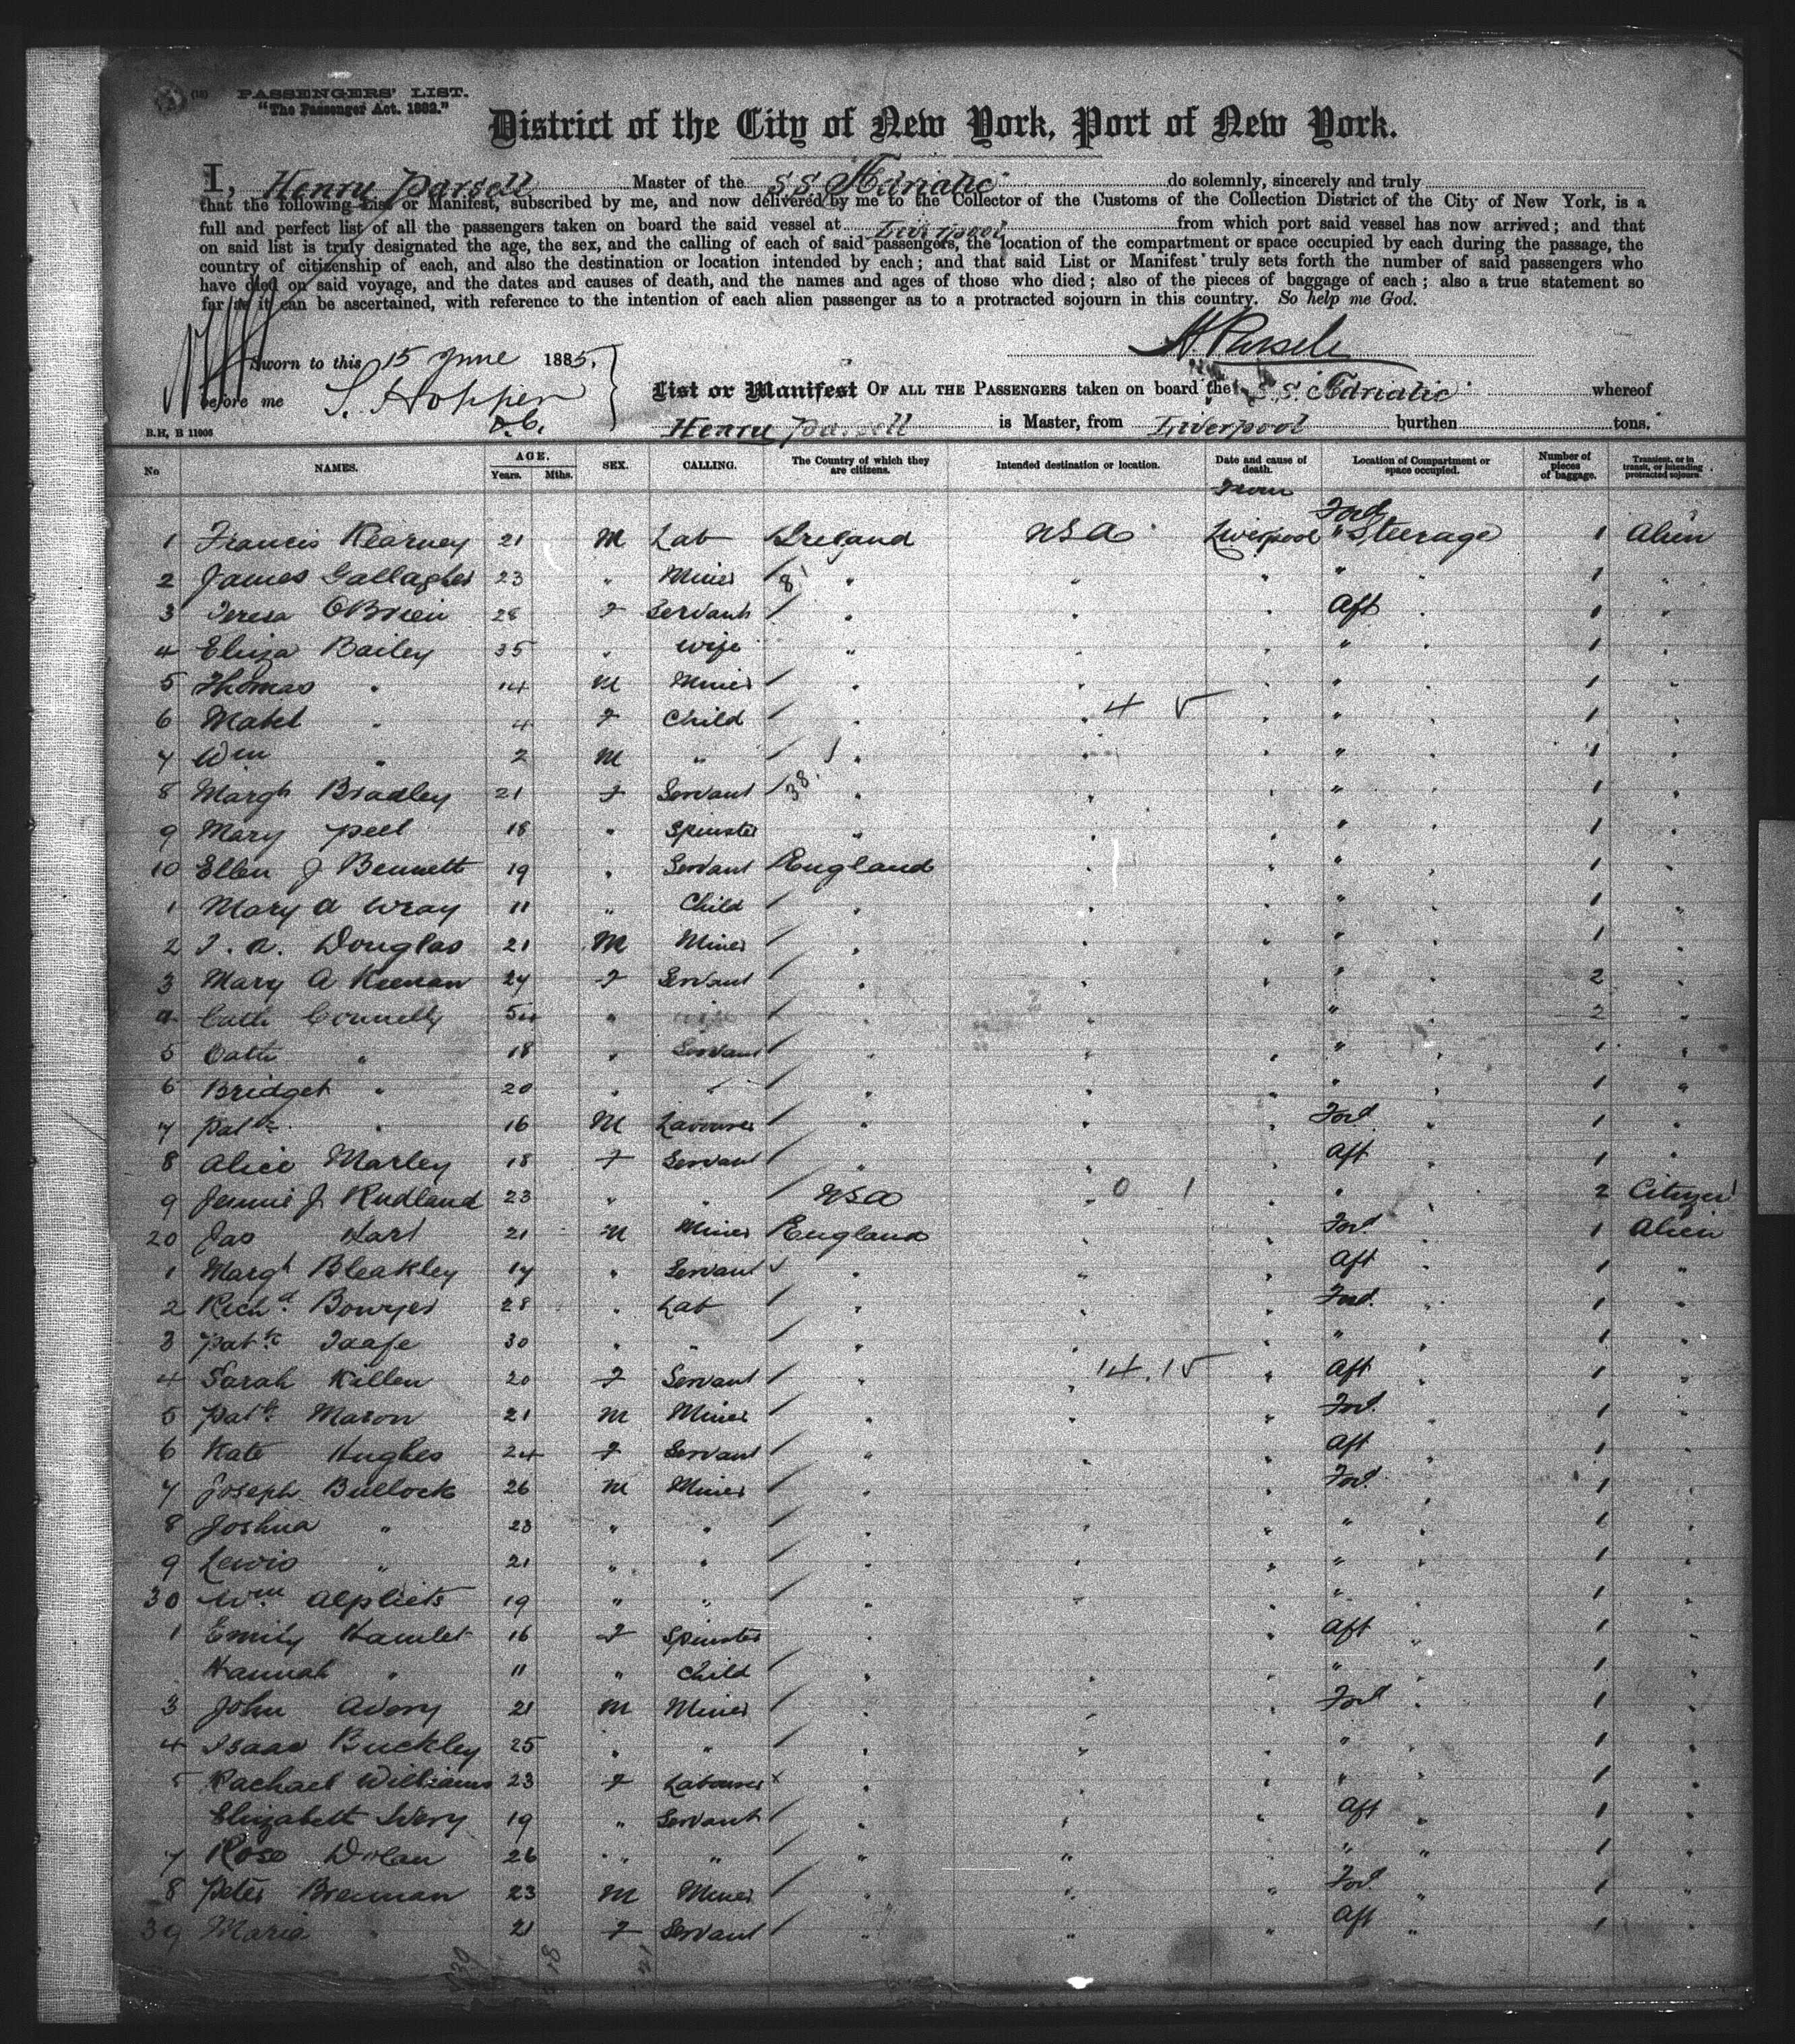 PASSENGERS' LIST.
"The Passenger Act. 1882."
District of the City of New York, Port of New York.
I, Henry Parsell Master of the S.S. Adriatic do solemnly, sincerely and truly
that the following List or Manifest, subscribed by me, and now delivered by me to the Collector of the Customs of the Collection District of the City of New York, is a
full and perfect list of all the passengers taken on board the said vessel at Liverpool from which port said vessel has now arrived; and that
on said list is truly designated the age, the sex, and the calling of each of said passengers, the location of the compartment or space occupied by each during the passage, the
country of citizenship of each, and also the destination or location intended by each; and that said List or Manifest truly sets forth the number of said passengers who
have died on said voyage, and the dates and causes of death, and the names and ages of those who died; also of the pieces of baggage of each; also a true statement so
far as it can be ascertained, with reference to the intention of each alien passenger as to a protracted sojourn in this country. So help me God.
H. Parsell
Sworn to this 15 June 1885.
before me S. Hopper
D.C.
List or Manifest OF ALL THE PASSENGERS taken on board the S.S. Adriatic whereof
Henry Parsell is Master, from Liverpool burthen tons.
B.H, B 11906
No NAMES. AGE. Years. Mths. SEX. CALLING. The Country of which they are citizens. Intended destination or location. Date and cause of death. Location of Compartment or space occupied. Number of pieces of baggage. Transient, or in transit, or intending protracted sojourn.
From
1 Francis Kearney 21 M Lab Ireland USA Liverpool Ford Steerage 1 Alien
2 James Gallagher 23 " Miner 8 " " " " 1 "
3 Teresa OBrien 28 F Servant " " " Aft " 1 "
4 Eliza Bailey 35 " Wife " " " " 1 "
5 Thomas " 14 M Miner " " " " 1 "
6 Mabel " 4 F Child " " 4 5 " " " 1 "
7 Wm " 2 M " " " " " " 1 "
8 Margt Bradley 21 F Servant 38 " " " " " 1 "
9 Mary Peel 18 " Spinster " " " " 1 "
10 Ellen J Bennett 19 " Servant England " " " " 1 "
1 Mary A Wray 11 " Child " " " " " 1 "
2 J. A. Douglas 21 M Miner " " " " 1 "
3 Mary A Keenan 24 F Servant " " " " 2 "
4 Cath Connelly 54 " " " " " 2 "
5 Cath " 18 " Servant " " " " " 1 "
6 Bridget " 20 " " " " " " " 1 "
7 Patk " 16 M Labourer " " " Ford " 1 "
8 Alice Marley 18 F Servant " " " Aft " 1 "
9 Jennie J Rudland 23 " " USA " 0 1 " " 2 Citizen
20 Jas Hart 21 M Miner England " Ford " 1 Alien
1 Margt Bleakley 17 " Servant " " " Aft " 1 "
2 Richd Bowyer 28 " Lab " " " Ford " 1 "
3 Patk Taafe 30 " " " " " " 1 "
4 Sarah Killen 20 F Servant " " 14.15 " Aft " 1 "
5 Patk Mason 21 M Miner " " " Ford " 1 "
6 Kate Hughes 24 F Servant " " " Aft " 1 "
7 Joseph Bullock 26 M Miner " " " Ford " 1 "
8 Joshua " 23 " " " " " " " 1 "
9 Lewis " 21 " " " " " " " 1 "
30 Wm 19 " " " " " " " 1 "
1 Emily Hamlet 16 F Spinster " " Aft " 1 "
Hannah " 11 " Child " " " " " 1 "
3 John Avery 21 M Miner " " " Ford " 1 "
4 Isaac Buckley 25 " " " " " " " 1 "
5 Rachael Williams 23 F Labourer x " " " " " 1 "
Elizabeth Ivery 19 " Servant " " " Aft " 1 "
7 Rose Dolan 26 " " " " " " " 1 "
8 Peter Brennan 23 M Miner " " " Ford " 1 "
39 Maria " 21 F Servant " " " Aft " 1 "